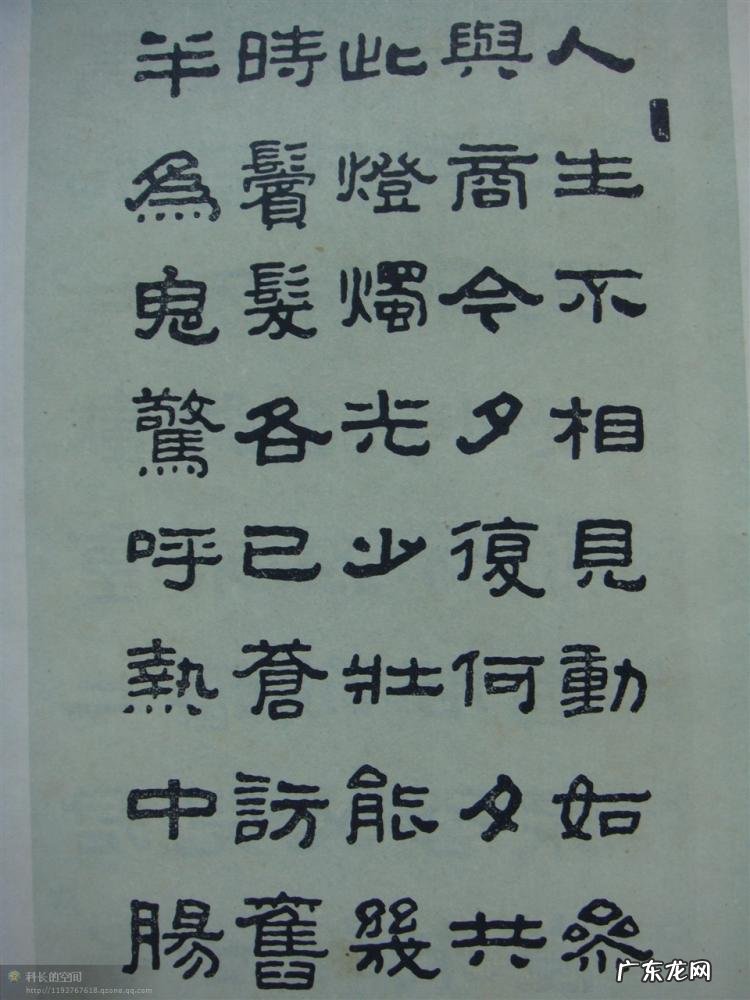 人生不相見動如參
與商今夕復何夕共
此燈燭光少壯能幾
時鬢髮各已蒼訪舊
半為鬼驚呼熱中腸
科长的空间
http://1193767618.qzone.qq.com
广东龙网